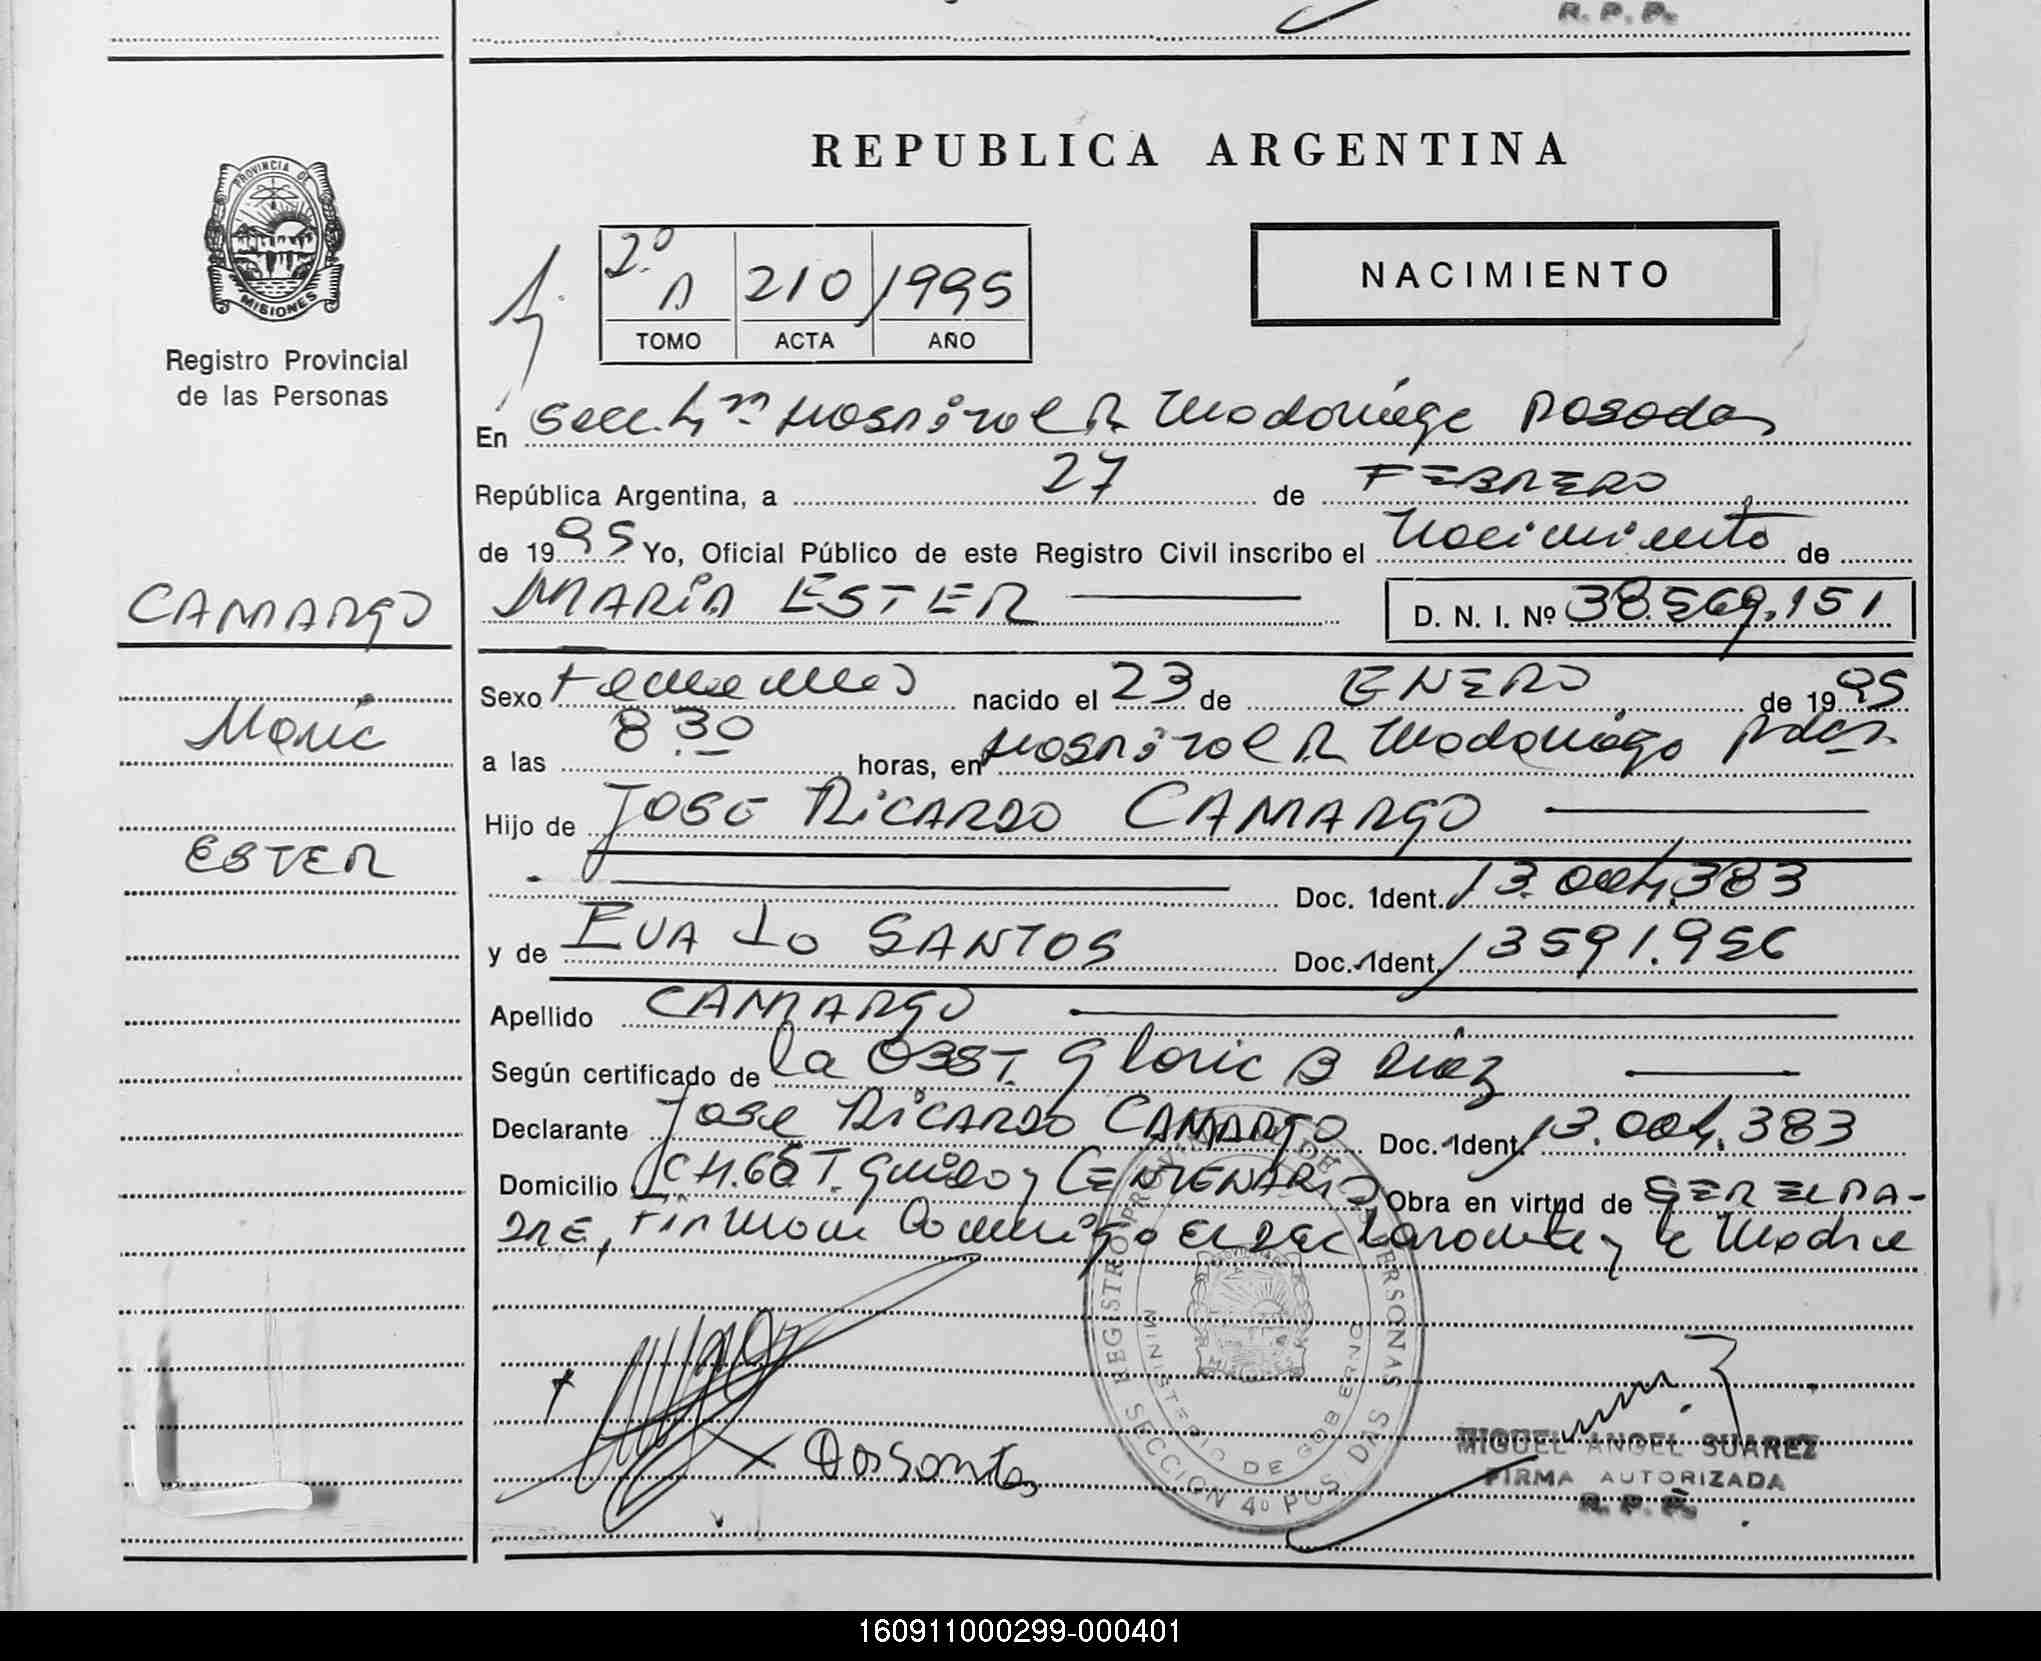 R. P. P.
REPUBLICA ARGENTINA
PROVINCIA DE
MISIONES
Registro Provincial
de las Personas
2º A 210 1995
TOMO ACTA AÑO
NACIMIENTO
En Secc. 4ta Hospital R. Madariaga Posadas
República Argentina, a 27 de FEBRERO
de 1995 Yo, Oficial Público de este Registro Civil inscribo el Nacimiento de
CAMARGO
MARIA ESTER D. N. I. Nº 38.569.151
Sexo Femenino nacido el 23 de ENERO de 1995
Maria
a las 8 30 horas, en Hospital R. Madariaga Pdas.
Hijo de JOSE RICARDO CAMARGO
ESTER
Doc. Ident. 13.004.383
y de EVA Do SANTOS Doc. Ident. 13591.956
Apellido CAMARGO
Según certificado de la OBST. Gloria B Diaz
Declarante Jose RICARDO CAMARGO Doc. Ident. 13.004.383
Domicilio CH. 66 T. Guido y CENTENARIO Obra en virtud de SER EL PA-
DRE, Firman Conmigo El DEClarante y la Madre
REGISTRO PROVINCIAL DE PERSONAS
MINISTERIO DE GOBIERNO
MISIONES
SECCION 4º POSADAS
X Dos Santos
MIGUEL ANGEL SUAREZ
FIRMA AUTORIZADA
R. P. P.
160911000299-000401